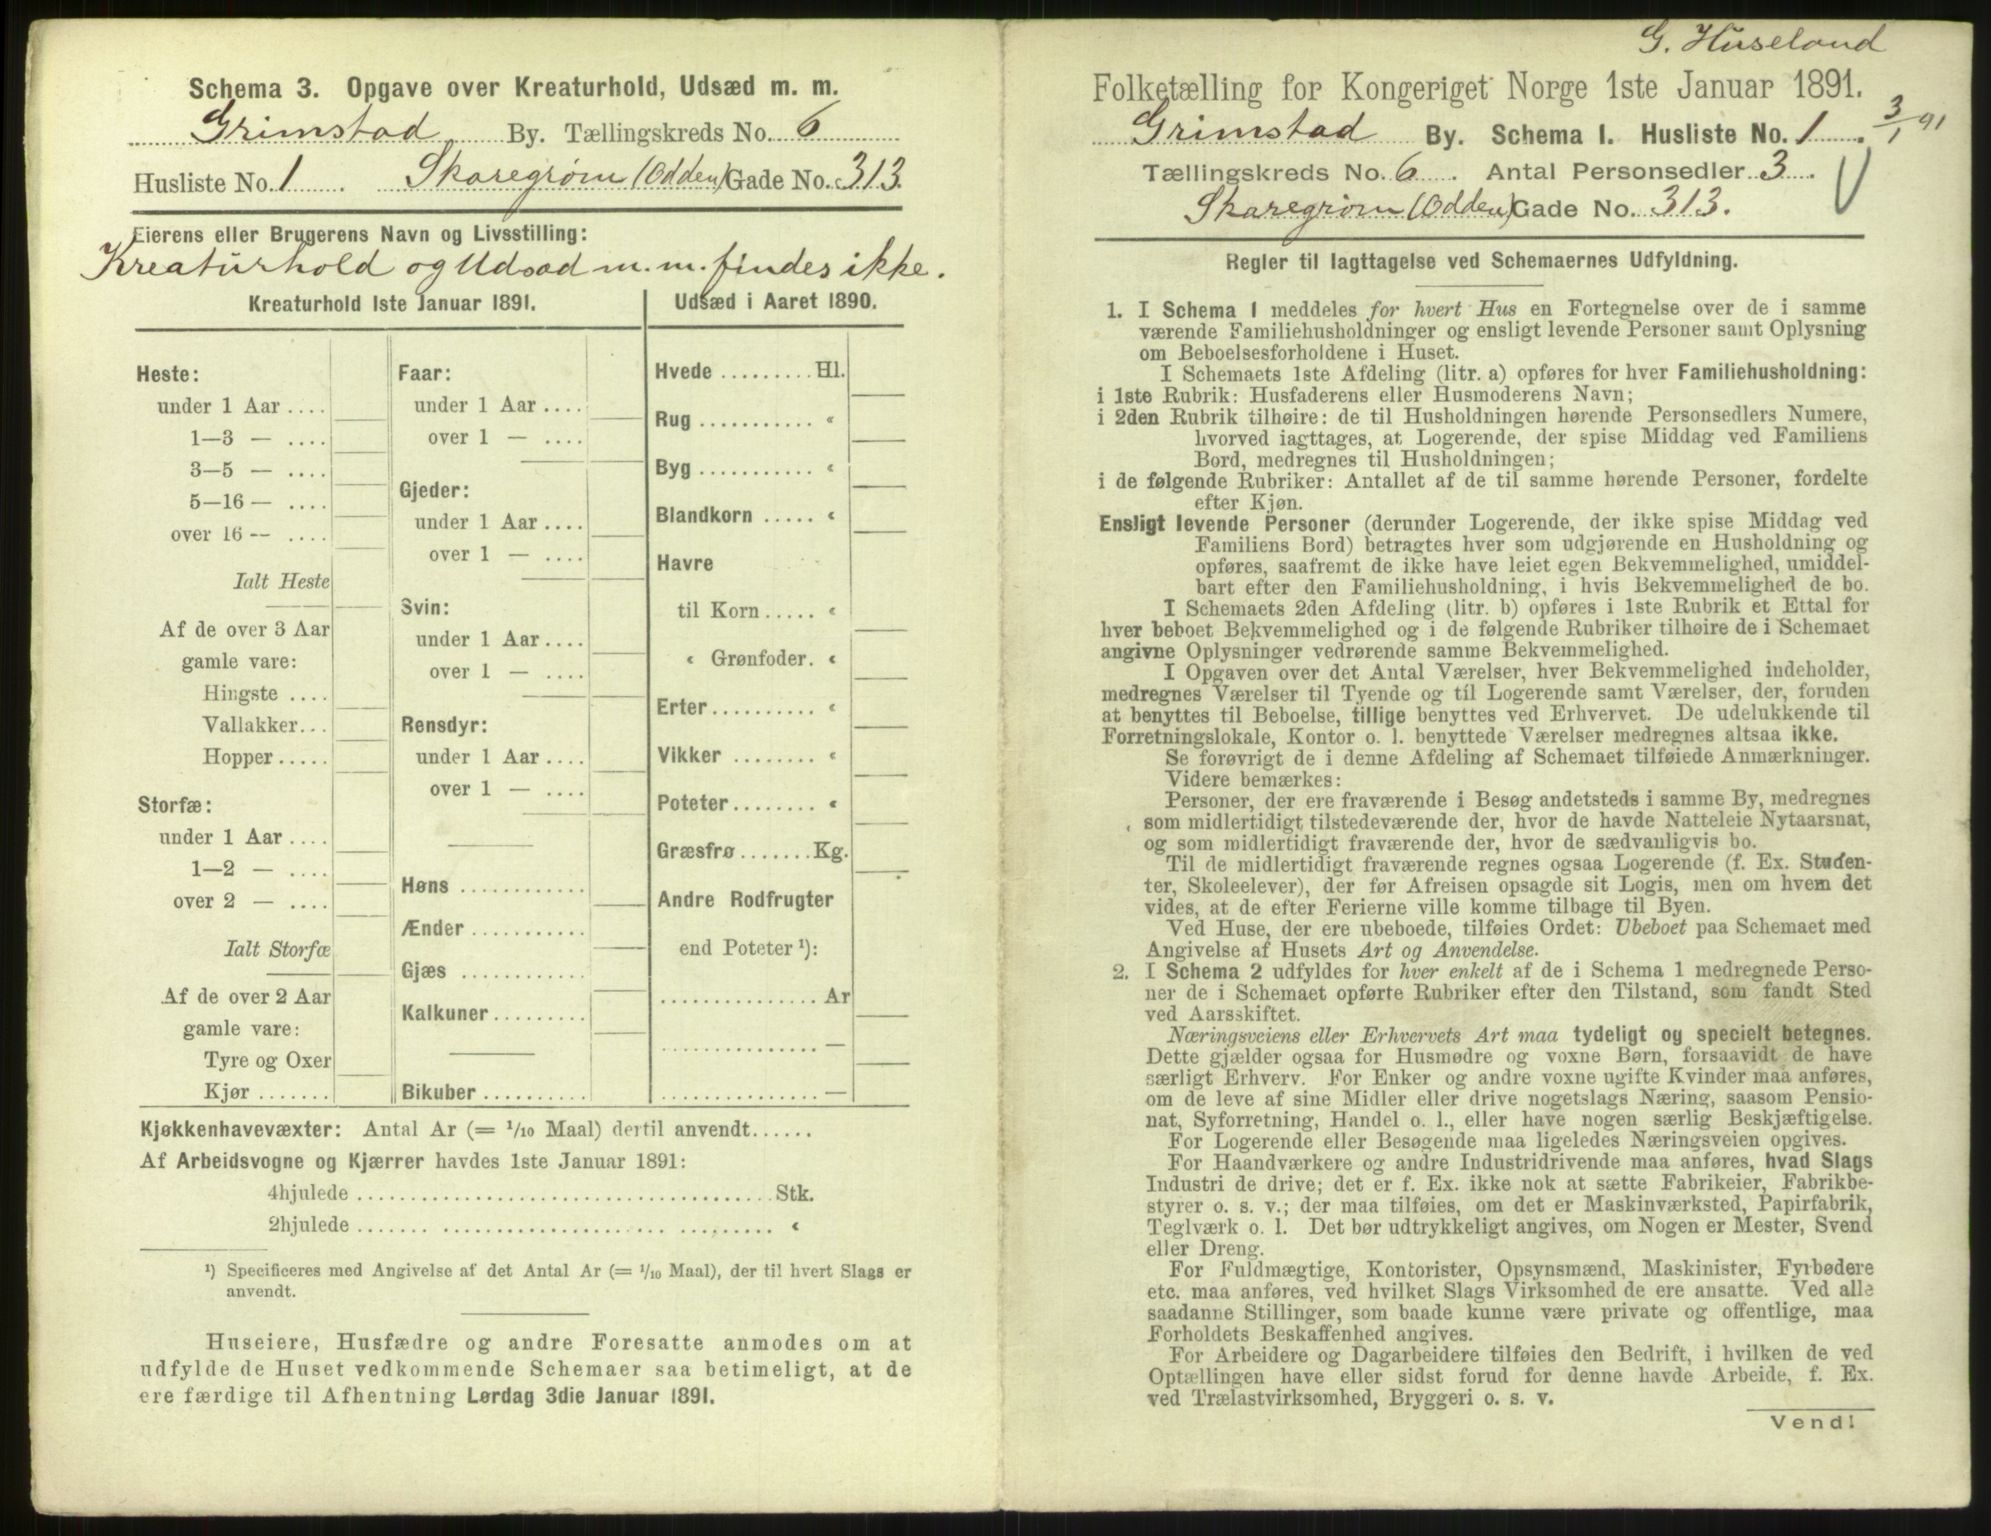 Schema 3. Opgave over Kreaturhold, Udsæd m. m.
Grimstad By. Tællingskreds No. 6
Husliste No. 1 Skaregrøm (Odden) Gade No. 313.
Eierens eller Brugerens Navn og Livsstilling:
Kreaturhold og Udsæd m. m. findes ikke.
Kreaturhold 1ste Januar 1891.
Heste:
under 1 Aar ....
1—3 — ....
3—5 — ....
5—16 — ....
over 16 — ....
Ialt Heste
Af de over 3 Aar
gamle vare:
Hingste ....
Vallakker...
Hopper.....
Storfæ:
under 1 Aar ....
1—2 — ....
over 2 — ....
Ialt Storfæ
Af de over 2 Aar
gamle vare:
Tyre og Oxer
Kjør .......
Faar:
under 1 Aar ....
over 1 — ....
Gjeder:
under 1 Aar ....
over 1 — ....
Svin:
under 1 Aar ....
over 1 — ....
Rensdyr:
under 1 Aar ....
over 1 — ....
Høns ............
Ænder ...........
Gjæs ............
Kalkuner.........
Bikuber ..........
Udsæd i Aaret 1890.
Hvede ......... Hl.
Rug ........... «
Byg ........... «
Blandkorn ..... «
Havre
til Korn..... «
« Grønfoder. «
Erter.......... «
Vikker ........ «
Poteter........ «
Græsfrø.......Kg.
Andre Rodfrugter
end Poteter ¹):
............... Ar
............... —
............... —
Kjøkkenhavevæxter: Antal Ar (= 1/10 Maal) dertil anvendt......
Af Arbeidsvogne og Kjærrer havdes 1ste Januar 1891:
4hjulede ........................................ Stk.
2hjulede ........................................ «
¹) Specificeres med Angivelse af det Antal Ar (= 1/10 Maal), der til hvert Slags er
anvendt.
Huseiere, Husfædre og andre Foresatte anmodes om at
udfylde de Huset vedkommende Schemaer saa betimeligt, at de
ere færdige til Afhentning Lørdag 3die Januar 1891.
G. Huseland
Folketælling for Kongeriget Norge 1ste Januar 1891.
Grimstad By. Schema I. Husliste No. 1. 3/1 91
Tællingskreds No. 6. Antal Personsedler 3.
Skaregrøm (Odden) Gade No. 313.
Regler til Iagttagelse ved Schemaernes Udfyldning.
1. I Schema 1 meddeles for hvert Hus en Fortegnelse over de i samme
værende Familiehusholdninger og ensligt levende Personer samt Oplysning
om Beboelsesforholdene i Huset.
I Schemaets 1ste Afdeling (litr. a) opføres for hver Familiehusholdning:
i 1ste Rubrik: Husfaderens eller Husmoderens Navn;
i 2den Rubrik tilhøire: de til Husholdningen hørende Personsedlers Numere,
hvorved iagttages, at Logerende, der spise Middag ved Familiens
Bord, medregnes til Husholdningen;
i de følgende Rubriker: Antallet af de til samme hørende Personer, fordelte
efter Kjøn.
Ensligt levende Personer (derunder Logerende, der ikke spise Middag ved
Familiens Bord) betragtes hver som udgjørende en Husholdning og
opføres, saafremt de ikke have leiet egen Bekvemmelighed, umiddel-
bart efter den Familiehusholdning, i hvis Bekvemmelighed de bo.
I Schemaets 2den Afdeling (litr. b) opføres i 1ste Rubrik et Ettal for
hver beboet Bekvemmelighed og i de følgende Rubriker tilhøire de i Schemaet
angivne Oplysninger vedrørende samme Bekvemmelighed.
I Opgaven over det Antal Værelser, hver Bekvemmelighed indeholder,
medregnes Værelser til Tyende og til Logerende samt Værelser, der, foruden
at benyttes til Beboelse, tillige benyttes ved Erhvervet. De udelukkende til
Forretningslokale, Kontor o. l. benyttede Værelser medregnes altsaa ikke.
Se forøvrigt de i denne Afdeling af Schemaet tilføiede Anmærkninger.
Videre bemærkes:
Personer, der ere fraværende i Besøg andetsteds i samme By, medregnes
som midlertidigt tilstedeværende der, hvor de havde Natteleie Nytaarsnat,
og som midlertidigt fraværende der, hvor de sædvanligvis bo.
Til de midlertidigt fraværende regnes ogsaa Logerende (f. Ex. Studen-
ter, Skoleelever), der før Afreisen opsagde sit Logis, men om hvem det
vides, at de efter Ferierne ville komme tilbage til Byen.
Ved Huse, der ere ubeboede, tilføies Ordet: Ubeboet paa Schemaet med
Angivelse af Husets Art og Anvendelse.
2. I Schema 2 udfyldes for hver enkelt af de i Schema 1 medregnede Perso-
ner de i Schemaet opførte Rubriker efter den Tilstand, som fandt Sted
ved Aarsskiftet.
Næringsveiens eller Erhvervets Art maa tydeligt og specielt betegnes.
Dette gjælder ogsaa for Husmødre og voxne Børn, forsaavidt de have
særligt Erhverv. For Enker og andre voxne ugifte Kvinder maa anføres,
om de leve af sine Midler eller drive nogetslags Næring, saasom Pensio-
nat, Syforretning, Handel o. l., eller have nogen særlig Beskjæftigelse.
For Logerende eller Besøgende maa ligeledes Næringsveien opgives.
For Haandværkere og andre Industridrivende maa anføres, hvad Slags
Industri de drive; det er f. Ex. ikke nok at sætte Fabrikeier, Fabrikbe-
styrer o. s. v.; der maa tilføies, om det er Maskinværksted, Papirfabrik,
Teglværk o. l. Det bør udtrykkeligt angives, om Nogen er Mester, Svend
eller Dreng.
For Fuldmægtige, Kontorister, Opsynsmænd, Maskinister, Fyrbødere
etc. maa anføres, ved hvilket Slags Virksomhed de ere ansatte. Ved alle
saadanne Stillinger, som baade kunne være private og offentlige, maa
Forholdets Beskaffenhed angives.
For Arbeidere og Dagarbeidere tilføies den Bedrift, i hvilken de ved
Optællingen have eller sidst forud for denne havde Arbeide, f. Ex.
ved Trælastvirksomhed, Bryggeri o. s. v.
Vend!